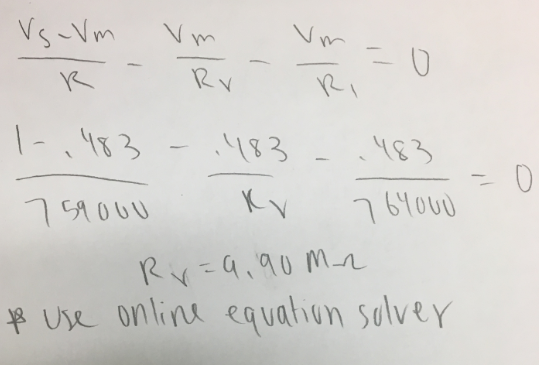 Vs-Vm/R - Vm/Rv - Vm/R1 = 0
1-.483/759000 - .483/Rv - .483/764000 = 0
Rv = 9.90 MΩ
* Use online equation solver